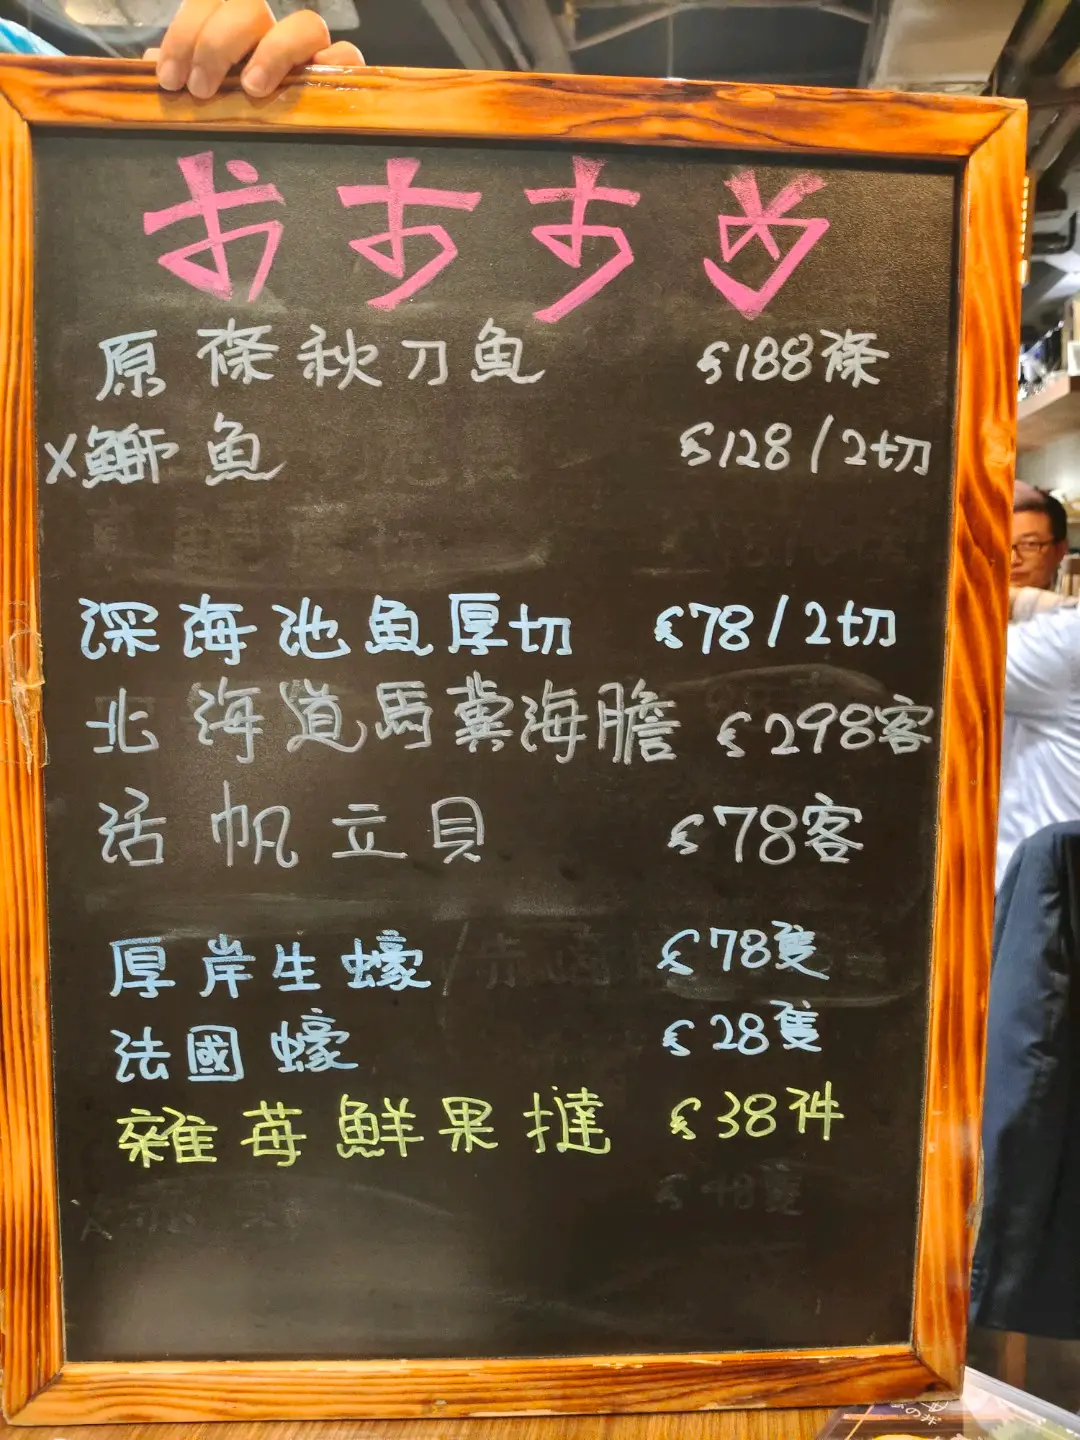 おすすめ
原條秋刀魚 $188條
X鰤魚 $128/2切
深海池魚厚切 $78/2切
北海道馬糞海膽 $298客
活帆立貝 $78客
厚岸生蠔 $78隻
法國蠔 $28隻
雜莓鮮果撻 $38件
$48隻